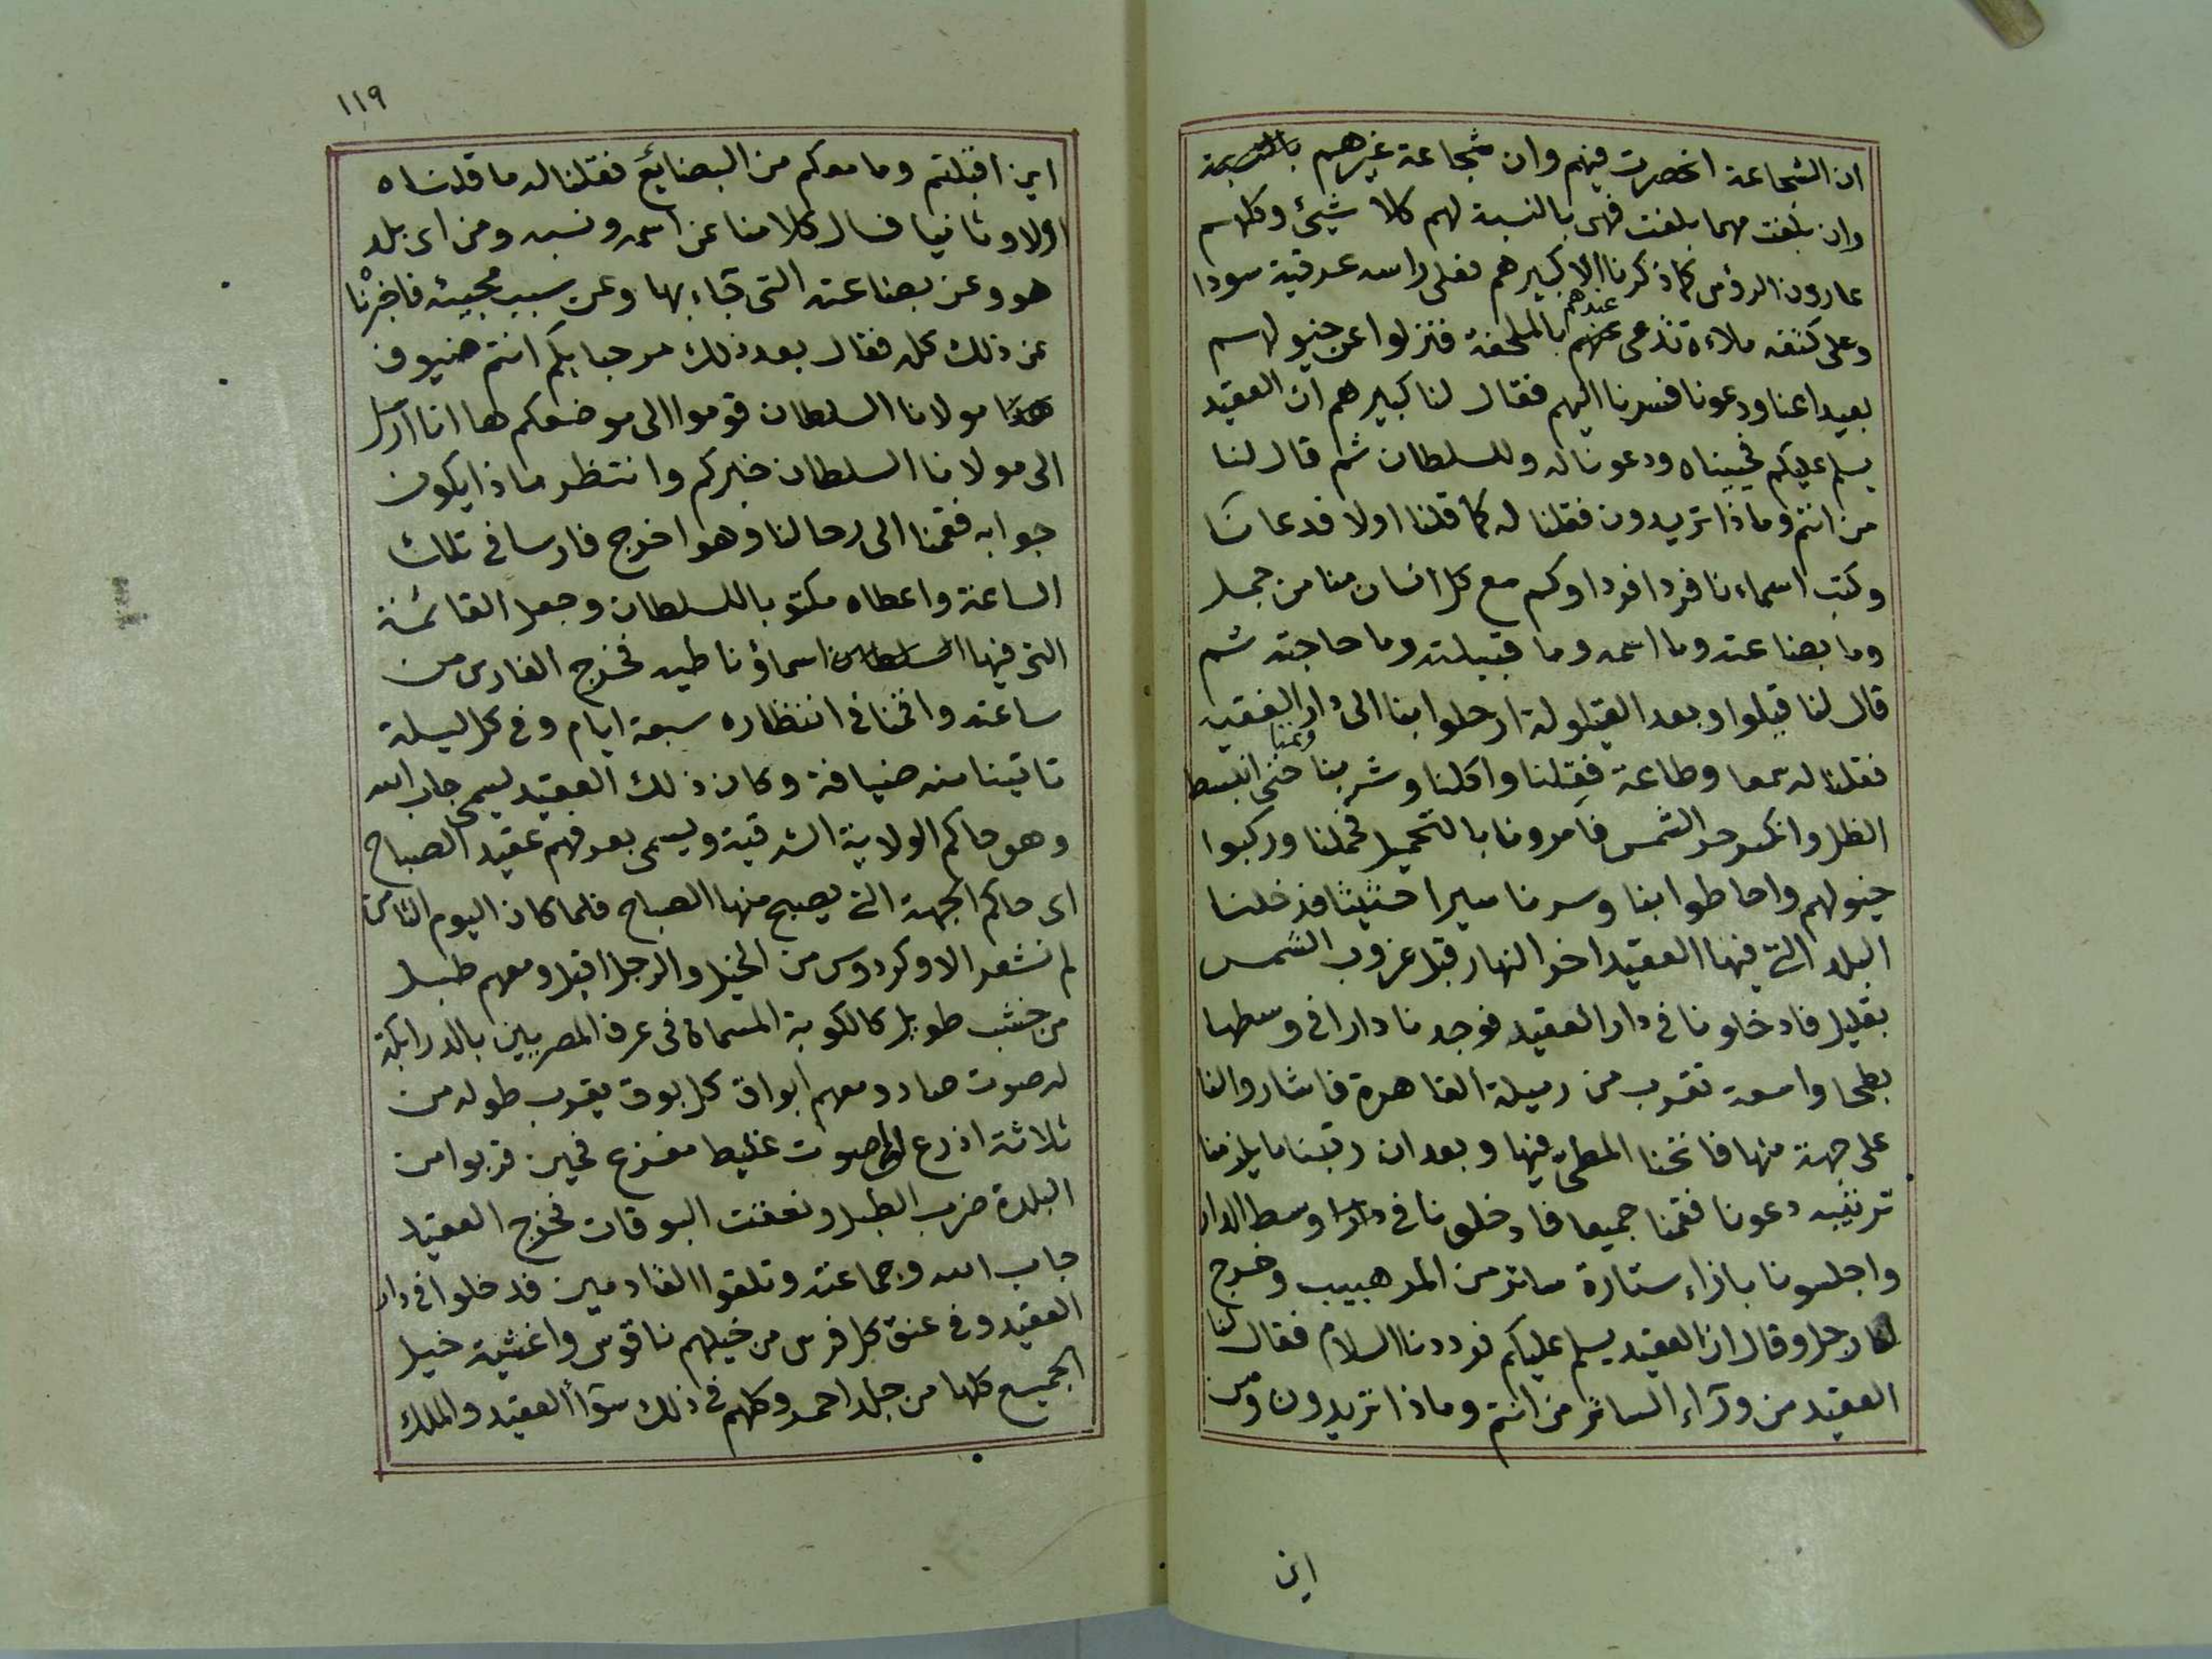 ان الشجاعة انحصرت فيهم وان شجاعة غيرهم بالنسبة
وان بلغت مهما بلغت فهى بالنسبة لهم كلا شيئ وكلهم
عارون الرؤس كما ذكرنا الا كبيرهم فعلى راسه عرقية سودا
وعلى كتفه ملاءة تدعى عندهم بالملحفة فنزلوا عن خيولهم
بعيدا عنا ودعونا فسرنا اليهم فقال لنا كبيرهم ان العقيد
يسلم عليكم فحييناه ودعونا له وللسلطان ثم قال لنا
من انتم وماذا تريدون فقلنا له كما قلنا اولا فدعا لنا
وكتب اسماءنا فردا فردا وكم مع كل انسان منا من جمل
وما بضاعته وما اسمه وما قبيلته وما حاجته ثم
قال لنا قيلوا وبعد القيلولة ارحلوا بنا الى دار العقيد
فقلنا له سمعا وطاعة فقلنا واكلنا وشربنا ونمنا حتى انبسط
الظل وانكسر حر الشمس فامرونا بالتحميل فحملنا وركبوا
خيولهم واحاطوا بنا وسرنا سيرا حثيثا فدخلنا
البلد التى فيها العقيد اخر النهار قبل غروب الشمس
بقليل فادخلونا فى دار العقيد فوجدنا دارا فى وسطها
بطحا واسعة تقرب من رميلة القاهرة فاشاروا لنا
على جهة منها فانخنا المطى فيها وبعد ان رتبنا ما يلزمنا
ترتيبه دعونا فقمنا جميعا فادخلونا فى دار وسط الدار
واجلسونا بازاء ستارة ساتر من المرهبيب وخرج
لنا رجل وقال ان العقيد يسلم عليكم فرددنا السلام فقال لنا
العقيد من ورآء الساتر من انتم وماذا تريدون ومن
اين
١١٩
اين اقبلتم وما معكم من البضايع فقلنا له ما قلناه
اولا وثانيا فسال كلا منا عن اسمه ونسبه ومن اى بلد
هو وعن بضاعته التى جاء بها وعن سبب مجيئه فاخبرنا
عن ذلك كله فقال بعد ذلك مرحبا بكم انتم ضيوف
مولانا السلطان قوموا الى موضعكم ها انا ارسل
الى مولانا السلطان خبركم وانتظر ماذا يكون
جوابه فقمنا الى رحالنا وهو اخرج فارسا فى تلك
الساعة واعطاه مكتوبا للسلطان وجعل القائمة
التى فيها السلطان اسماؤنا طيه فخرج الفارس من
ساعته واقمنا فى انتظاره سبعة ايام وفى كل ليلة
تاتينا منه ضيافة وكان ذلك العقيد يسمى جاب الله
وهو حاكم الولاية الشرقية ويسمى بعرفهم عقيد الصباح
اى حاكم الجهة التى يصبح منها الصباح فلما كان اليوم الثامن
لم نشعر الا وكردوس من الخيل والرجل اقبل ومعهم طبل
من خشب طويل كالكوبة المسماة فى عرف المصريين بالدرابكة
له صوت حاد ومعهم ابواق كل بوق يقرب طوله من
ثلاثة اذرع لها صوت غليظ مفزع فحين قربوا من
البلدة ضرب الطبل ونعقت البوقات فخرج العقيد
جاب الله وجماعته وتلقوا القادمين فدخلوا فى دار
العقيد وفى عنق كل فرس من خيلهم ناقوس واغشية خيل
الجميع كلها من جلد احمر وكلهم فى ذلك سوآأ العقيد والملك